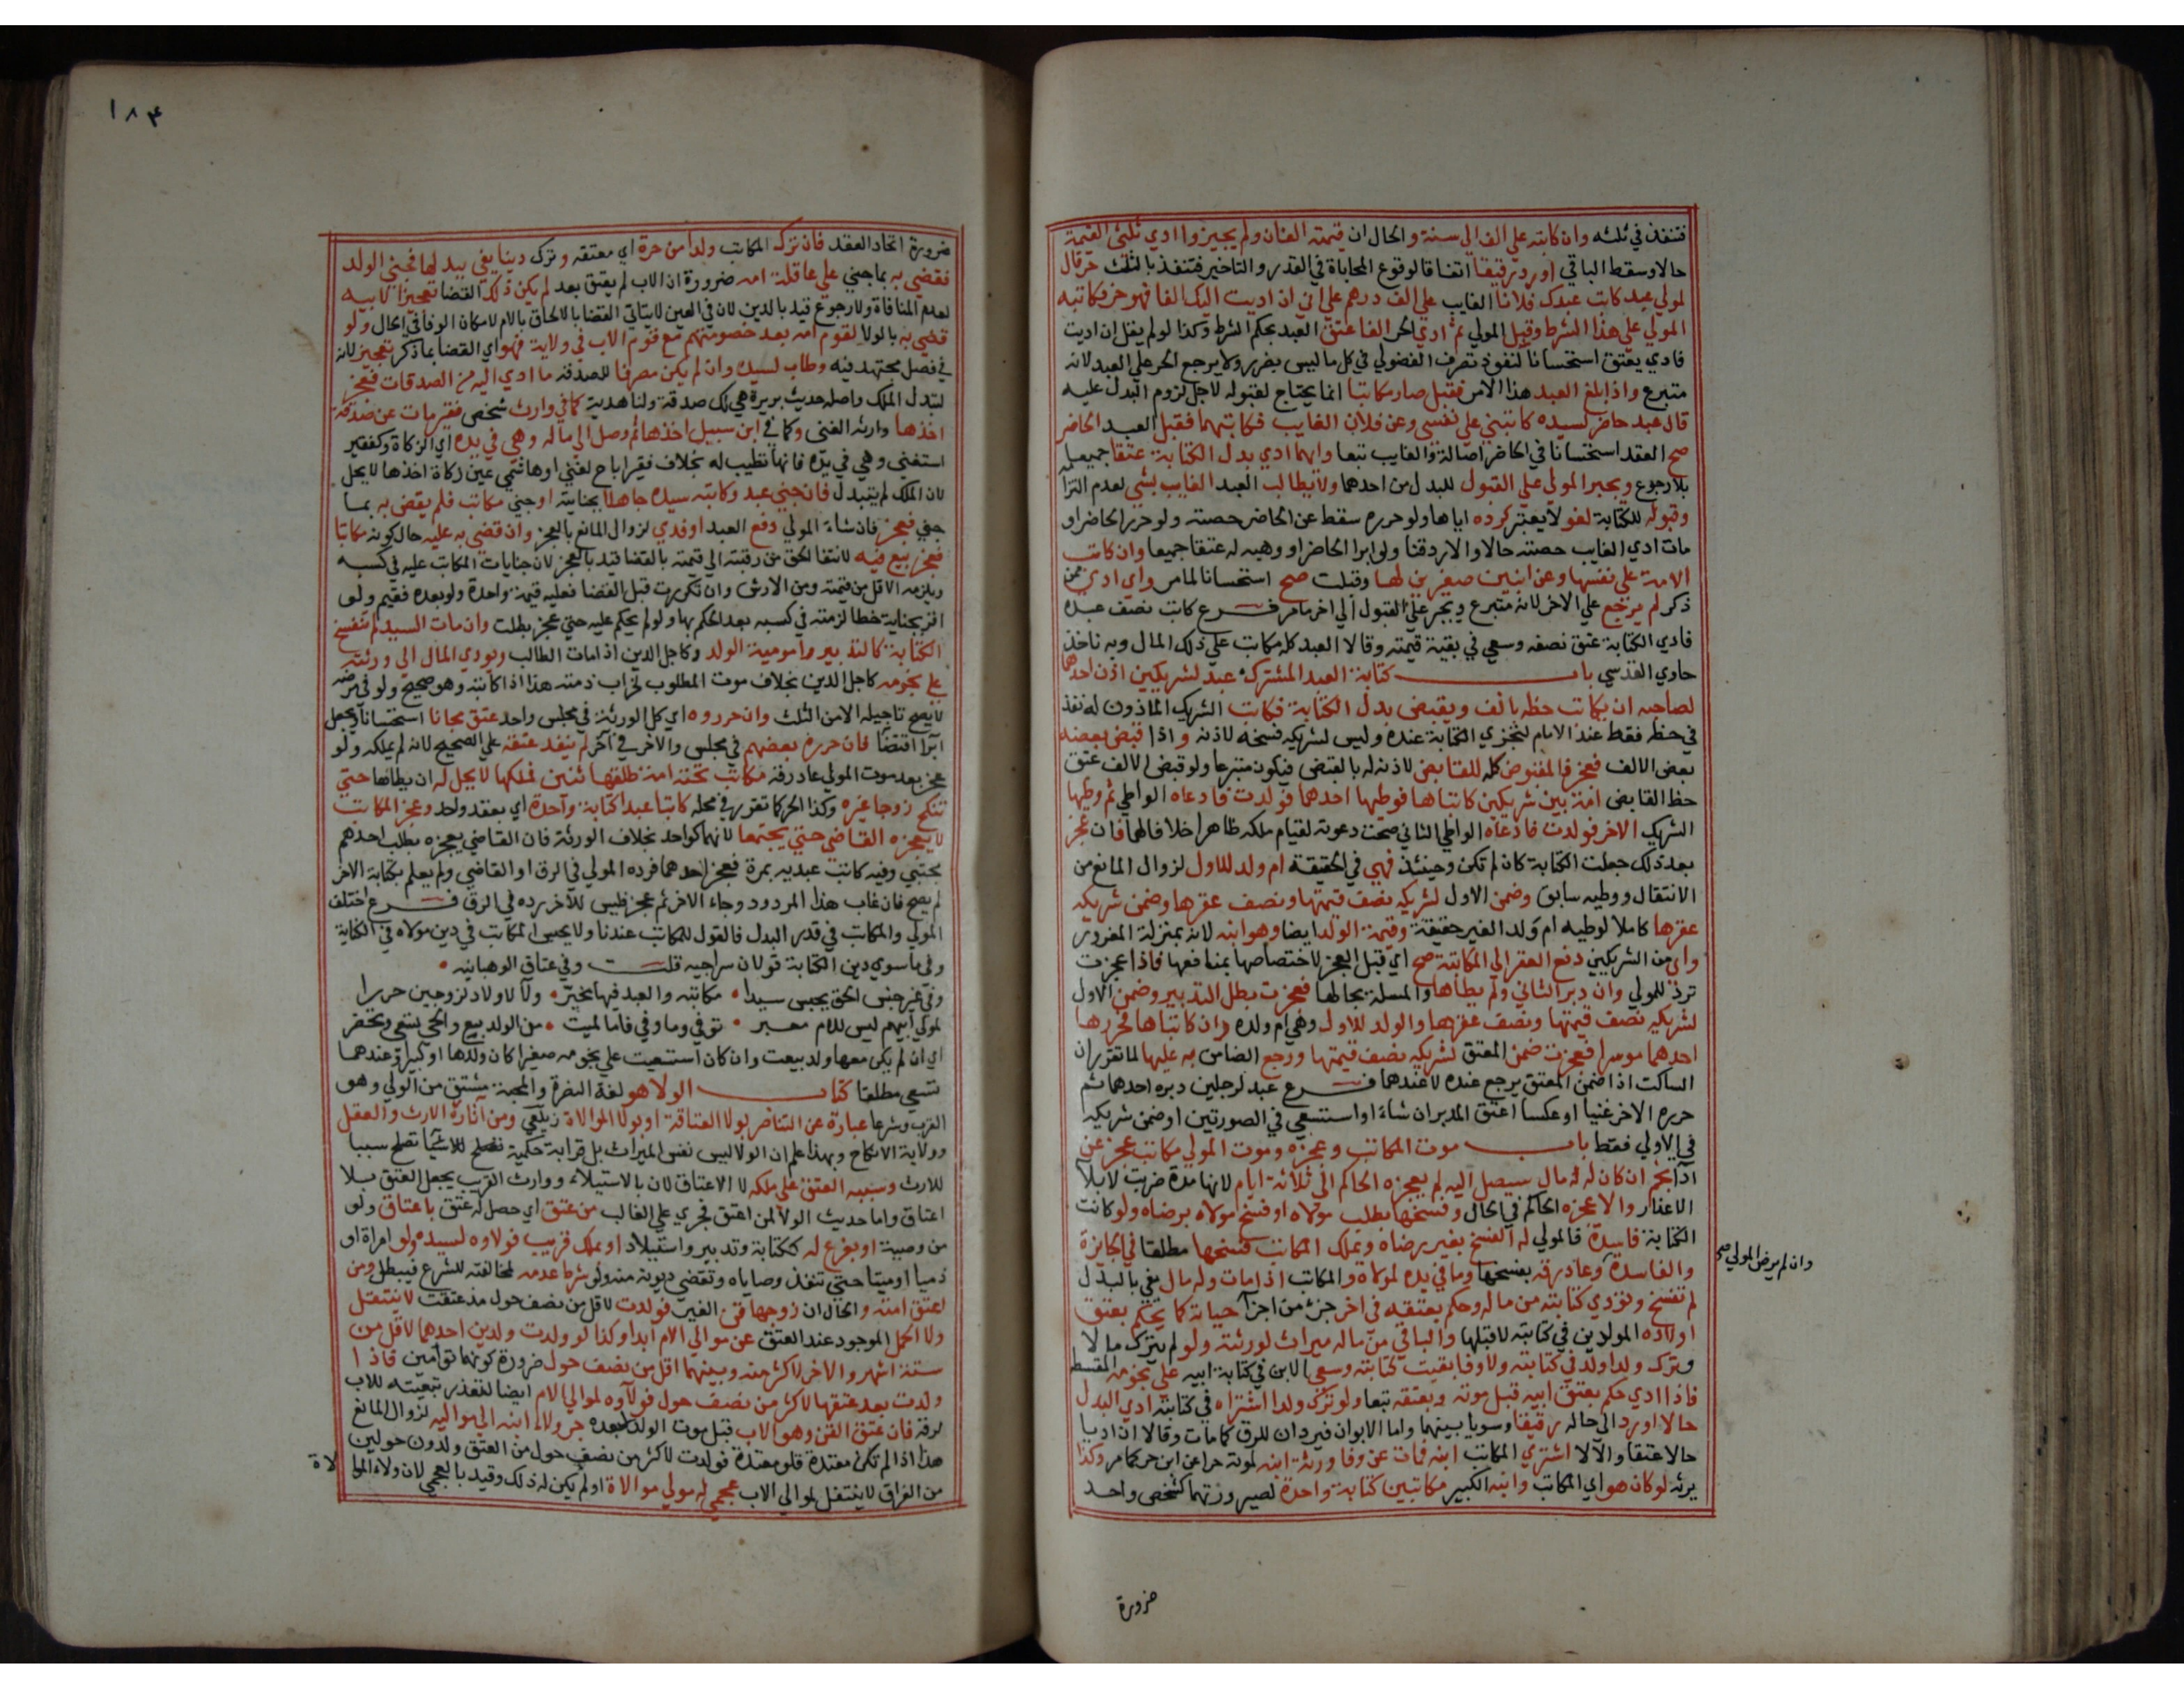 فتنفذ في ثلثه وان كاتبه علي الف الي سنة والحال ان قيمته الفان ولم يجيزوا ادي ثلثي القيمة
حالا وسقط الباقي او رد رقيقا اتفاقا لوقوع المحاباة في القدر والتاخير فتنفذ بالثلث حر قال
لمولي عبد كاتب عبدك فلانا الغايب علي الف درهم علي اني ان اديت اليك الفا فهو حر فكاتبه
المولي علي هذا الشرط وقبل المولي ثم ادي الحر الفا عتق العبد بحكم الشرط وكذا لو لم يقل ان اديت
فادي يعتق استحسانا لنفوذ تصرف الفضولي في كل ما ليس بضرر ولا يرجع الحر علي العبد لانه
متبرع واذا بلغ العبد هذا الامر فقبل صار مكاتبا انما يحتاج لقبوله لاجل لزوم البدل عليه
قال عبد حاضر لسيده كاتبني علي نفسي وعن فلان الغايب فكاتبهما فقبل العبد الحاضر
صح العقد استحسانا في الحاضر اصالة والغايب تبعا وايهما ادي بدل الكتابة عتقا جميعا
بلا رجوع ويجبر المولي علي القبول للبدل من احدهما ولا يطالب العبد الغايب بشي لعدم التزامه
وقبوله للكتابة لغو لا يعتبر كرده اياها ولو حرره سقط عن الحاضر حصته ولو حرر الحاضر او
مات ادي الغايب حصته حالا والا رد قنا ولو ابرا الحاضر او وهبه له عتقا جميعا وان كاتب
الامة علي نفسها وعن ابنين صغيرين لها وقبلت صح استحسانا لما مر واي ادي ممن
ذكر لم يرجع علي الاخر لانه متبرع ويجبر علي القبول الي اخر ما مر فرع كاتب نصف عبده
فادي الكتابة عتق نصفه وسعي في بقية قيمته وقالا العبد كله مكاتب علي ذلك المال وبه ناخذ
حاوي القدسي باب كتابة العبد المشترك عبد لشريكين اذن احدهما
لصاحبه ان يكاتب حظه بالف ويقبض بدل الكتابة فكاتب الشريك الماذون له نفذ
في حظه فقط عند الامام لتجزي الكتابة عنده وليس لشريكه فسخه لاذنه واذا قبض بعضه
بعض الالف فعجز فالمقبوض كله للقابض لاذنه له بالقبض فيكون متبرعا ولو قبض الالف عتق
حظ القابض امة بين شريكين كاتباها فوطيها احدهما فولدت فادعاه الواطي ثم وطيها
الشريك الاخر فولدت فادعاه الواطي الثاني صحت دعوته لقيام ملكه ظاهرا خلافا لهما فان عجز
بعد ذلك جعلت الكتابة كان لم تكن وحينئذ فهي في الحقيقة ام ولد للاول لزوال المانع من
الانتقال ووطيه سابق وضمن الاول لشريكه نصف قيمتها ونصف عقرها وضمن شريكه
عقرها كاملا لوطيه ام ولد الغير حقيقة وقيمة الولد ايضا وهو ابنه لانه بمنزلة المغرور
واي من الشريكين دفع العقر الي المكاتبة صح اي قبل العجز لاختصاصها بمنافعها فاذا عجزت
ترد للمولي وان دبر الثاني ولم يطاها والمسلة بحالها فعجزت بطل التدبير وضمن الاول
لشريكه نصف قيمتها ونصف عقرها والولد للاول وهي ام ولده وان كاتباها فحررها
احدهما موسرا فعجزت ضمن المعتق لشريكه نصف قيمتها ورجع الضامن به عليها لما تقرر ان
الساكت اذا ضمن المعتق يرجع عنده لا عندهما فرع عبد لرجلين دبره احدهما ثم
حرره الاخر غنيا او عكسا اعتق المدبر ان شاء او استسعي في الصورتين او ضمن شريكه
في الاولي فقط باب موت المكاتب وعجزه وموت المولي مكاتب عجز عن
ادا نجم ان كان له مال سيصل اليه لم يعجزه الحاكم الي ثلاثة ايام لانها مدة ضربت لابلا
الاعذار والا عجزه الحاكم في الحال وفسخها بطلب مولاه او فسخ مولاه برضاه ولو كانت
الكتابة فاسدة فالمولي له الفسخ بغير رضاه ويملك المكاتب فسخها مطلقا في الجايزة
وان لم يرض المولي صح
والفاسدة وعاد رقه بفسخها وما في يده لمولاه والمكاتب اذا مات وله مال يفي بالبدل
لم تفسخ وتودي كتابته من ماله وحكم بعتقه في اخر جزء من اجزا حياته كما يحكم بعتق
اولاده المولودين في كتابته لا قبلها والباقي من ماله ميراث لورثته ولو لم يترك مالا
وترك ولدا ولد في كتابته ولا وفا بقيت كتابته وسعي الابن في كتابة ابيه علي نجومه المقسطة
فاذا ادي حكم بعتق ابيه قبل موته وبعتقه تبعا ولو ترك ولدا اشتراه في كتابته ادي البدل
حالا او رد الي حاله رقيقا وسويا بينهما واما الابوان فيردان للرق كما مات وقالا ان اديا
حالا عتقا والا لا اشتري المكاتب ابنه فمات عن وفا ورثه ابنه لموته حرا عن ابن حر كما مر وكذا
يرثه لو كان هو اي المكاتب وابنه الكبير مكاتبين كتابة واحدة لصيرورتهما كشخص واحد
ضرورة
١٨٤
ضرورة اتحاد العقد فان ترك المكاتب ولدا من حرة اي معتقه وترك دينا يفي ببدلها فجني الولد
فقضي به بما جني علي عاقلة امه ضرورة ان الاب لم يعتق بعد لم يكن ذلك القضا تعجيزا لابيه
لعدم المنافاة ولا رجوع قيد بالدين لان في العين لا يتاتي القضا بالالحاق بالام لامكان الوفا في الحال ولو
قضي به بالولا لقوم امه بعد خصومتهم مع قوم الاب في ولاية فهو اي القضا بما ذكر تعجيز لانه
في فصل مجتهد فيه وطاب لسيده وان لم يكن مصرفا للصدقة ما ادي اليه من الصدقات فعجز
لتبدل الملك واصله حديث بريرة هي لك صدقة ولنا هدية كما في وارث شخص فقير مات عن صدقة
اخذها وارثه الغني وكما في ابن سبيل اخذها ثم وصل الي ماله وهي في يده اي الزكاة وكفقير
استغني وهي في يده فانها تطيب له بخلاف فقير اباح لغني او هاشمي عين زكاة اخذها لا يحل
لان الملك لم يتبدل فان جني عبد وكاتبه سيده جاهلا بجنايته او جني مكاتب فلم يقض به بما
جني فعجز فان شاء المولي دفع العبد او فدي لزوال المانع بالعجز وان قضي به عليه حال كونه مكاتبا
فعجز بيع فيه لانتقا الحق من رقبته الي قيمته بالقضا قيد بالعجز لان جنايات المكاتب عليه في كسبه
ويلزمه الاقل من قيمته ومن الارش وان تكررت قبل القضا فعليه قيمة واحدة ولو بعده فقيم ولو
اقر بجناية خطا لزمته في كسبه بعد الحكم بها ولو لم يحكم عليه حتي عجز بطلت وان مات السيد لم تنفسخ
الكتابة كالتدبير وامومية الولد وكاجل الدين اذا مات الطالب ويودي المال الي ورثته
علي نجومه كاجل الدين بخلاف موت المطلوب لخراب ذمته هذا اذا كاتبه وهو صحيح ولو في مرضه
لا يصح تاجيله الا من الثلث وان حرروه اي كل الورثة في مجلس واحد عتق مجانا استحسانا ويجعل
ابرا اقتضا فان حرره بعضهم في مجلس والاخر في آخر لم ينفذ عتقه علي الصحيح لانه لم يملكه ولو
عجز بعد موت المولي عاد رقه مكاتب تحته امة طلقها ثنتين فملكها لا يحل له ان يطاها حتي
تنكح زوجا غيره وكذا الحر كما تقرر في محله كاتبا عبدا كتابة واحدة اي بعقد واحد وعجز المكاتب
لا يعجزه القاضي حتي يجتمعا لانهما كواحد بخلاف الورثة فان القاضي يعجزه بطلب احدهم
مجتبي وفيه كاتب عبديه بمرة فعجز احدهما فرده المولي في الرق او القاضي ولم يعلم بكتابة الاخر
لم يصح فان غاب هذا المردود وجاء الاخر ثم عجز فليس للآخر رده في الرق فرع اختلف
المولي والمكاتب في قدر البدل فالقول للمكاتب عندنا ولا يحبس المكاتب في دين مولاه في الكتابة
وفي ما سوي دين الكتابة قولان سراجيه قلت وفي عتاق الوهبانيه
وفي غير جنس الحق يحبس سيدا مكاتبه والعبد فيها مخير ولا لاولاد لزوجين حررا
لمولي ابيهم ليس للام معبر توفي وما وفي فاما لميت من الولد بيع والحي يسعي وتحضر
اي ان لم يكن معها ولد بيعت وان كان استسعيت علي نجومه صغيرا كان ولدها او كبيرا وعندهما
تسعي مطلقا كتاب الولا هو لغة النصرة والمحبة مشتق من الولي وهو
القرب وشرعا عبارة عن التناصر بولا العتاقة او بولا الموالاة زيلعي ومن آثاره الارث والعقل
وولاية الانكاح وبهذا علم ان الولا ليس نفس الميراث بل قرابة حكمية تصلح للاشيا تصلح سببا
للارث وسببه العتق علي ملكه لا الاعتاق لان بالاستيلاء ووارث القرب يحصل العتق بلا
اعتاق واما حديث الولا لمن اعتق فجري علي الغالب من عتق اي حصل له عتق باعتاق ولو
من وصيه او بفرع له ككتابة وتدبير واستيلاد او بملك قريب فولاوه لسيده ولو امراة او
ذميا او ميتا حتي تنفذ وصاياه وتقضي ديونه منه ولو شرط عدمه لمخالفته للشرع فيبطل ومن
اعتق امته والحال ان زوجها قن الغير فولدت لاقل من نصف حول مذ عتقت لا ينتقل
ولا الحمل الموجود عند العتق عن موالي الام ابدا وكذا لو ولدت ولدين احدهما لاقل من
ستة اشهر والاخر لاكثر منه وبينهما اقل من نصف حول ضرورة كونهما توأمين فاذا
ولدت بعد عتقها لاكثر من نصف حول فولاوه لموالي الام ايضا لتعذر تبعيته للاب
لرقه فان عتق القن وهو الاب قبل موت الولد لا بعده جر ولاء ابنه الي مواليه لزوال المانع
هذا اذا لم تكن معتدة فلو معتدة فولدت لاكثر من نصف حول من العتق ولدون حولين
من الفراق لا ينتقل لموالي الاب عجمي له مولي موالاة او لم يكن له ذلك وقيد بالعجمي لان ولاء الموالاة